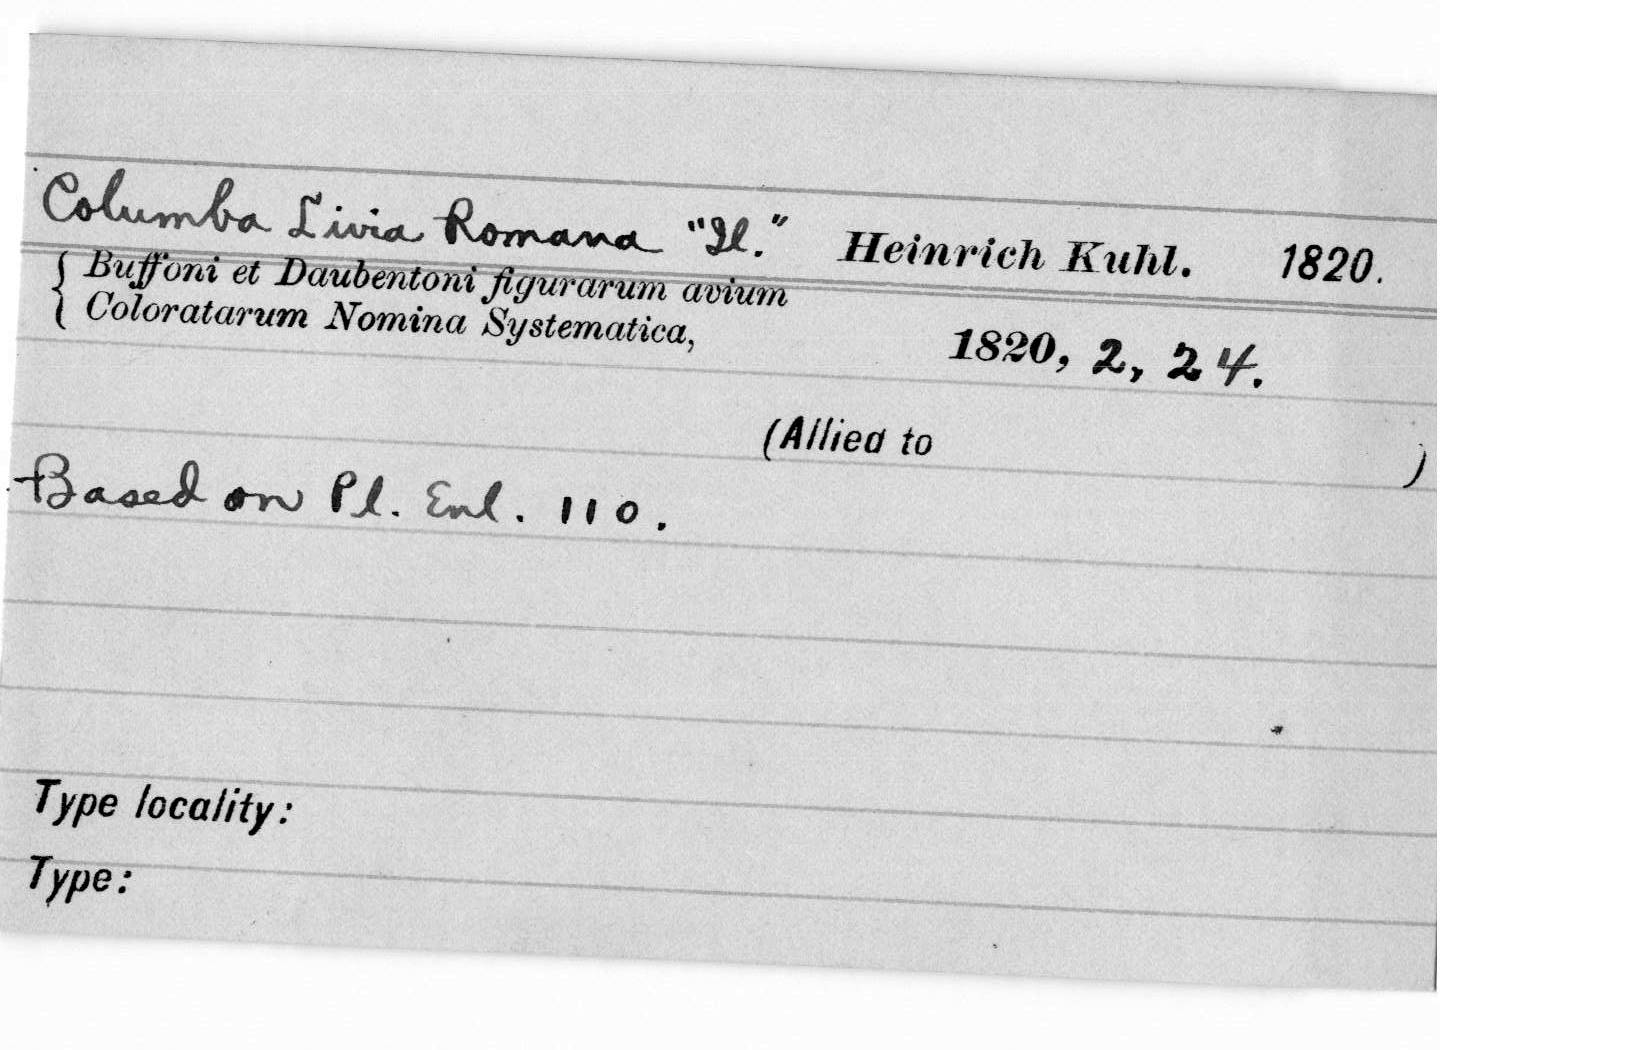 Columba Livia Romana "Il." Heinrich Kuhl. 1820.
Buffoni et Daubentoni figurarum avium
Coloratarum Nomina Systematica,
1820, 2, 24.
(Allied to )
Based on Pl. Enl. 110.
Type locality:
Type: